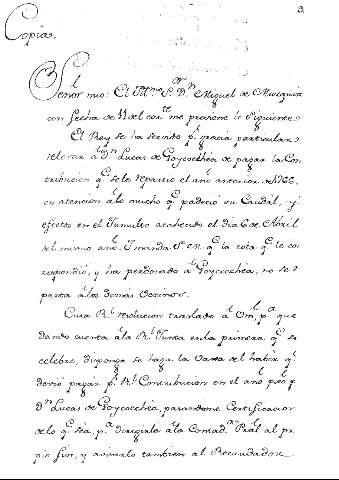 3.
Copia.
Señor mio: El Yll.mo S.or D.n Miguel de Muzquiz
con fecha de 11 del cor.te me previene lo siguiente
El Rey se ha servido p.r gracia particular
relevar a D.n Lucas de Goycochèa de pagar la Con-
tribucion q.e se le repartio el año anterior de 1766,
en atencion à lo mucho q.e padeciò su Caudal, y
efectos en el Tumulto acahecido el dia 6 de Abril
del mismo año. Y manda S. M. q.e la cota q.e le co-
rrespondiò, y ha perdonado à Goycochèa, no se re-
parta à los demàs Vecinos.
Cuia R.l resolucion traslado à Vm, p.a que
dando cuenta à la R.l Junta en la primera q.e se
celebre, disponga se haga la Vaxa del haber q.e
deviò pagar p.r R.l Contribucion en el año
D.n Lucas de Goycochèa, pasandome Certificacion
de lo q.e sea, p.a dirigirla à la Contad.a Pral al pro-
pio fin, y avisarlo tambien al Recaudador